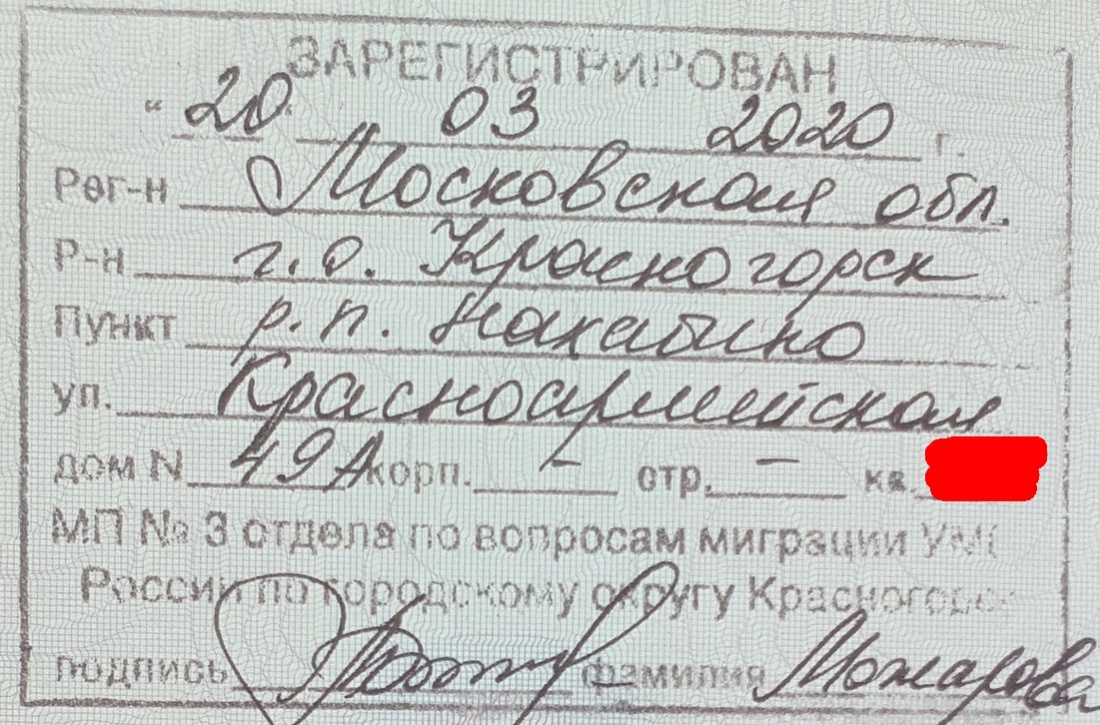 ЗАРЕГИСТРИРОВАН
"20" 03 2020 г.
Рег-н Московская обл.
Р-н г.о. Красногорск
Пункт р.п. Нахабино
ул. Красноармейская
дом N 49А корп. - стр. - кв.
МП № 3 отдела по вопросам миграции
России по городскому округу Красногорск
подпись фамилия Можарова